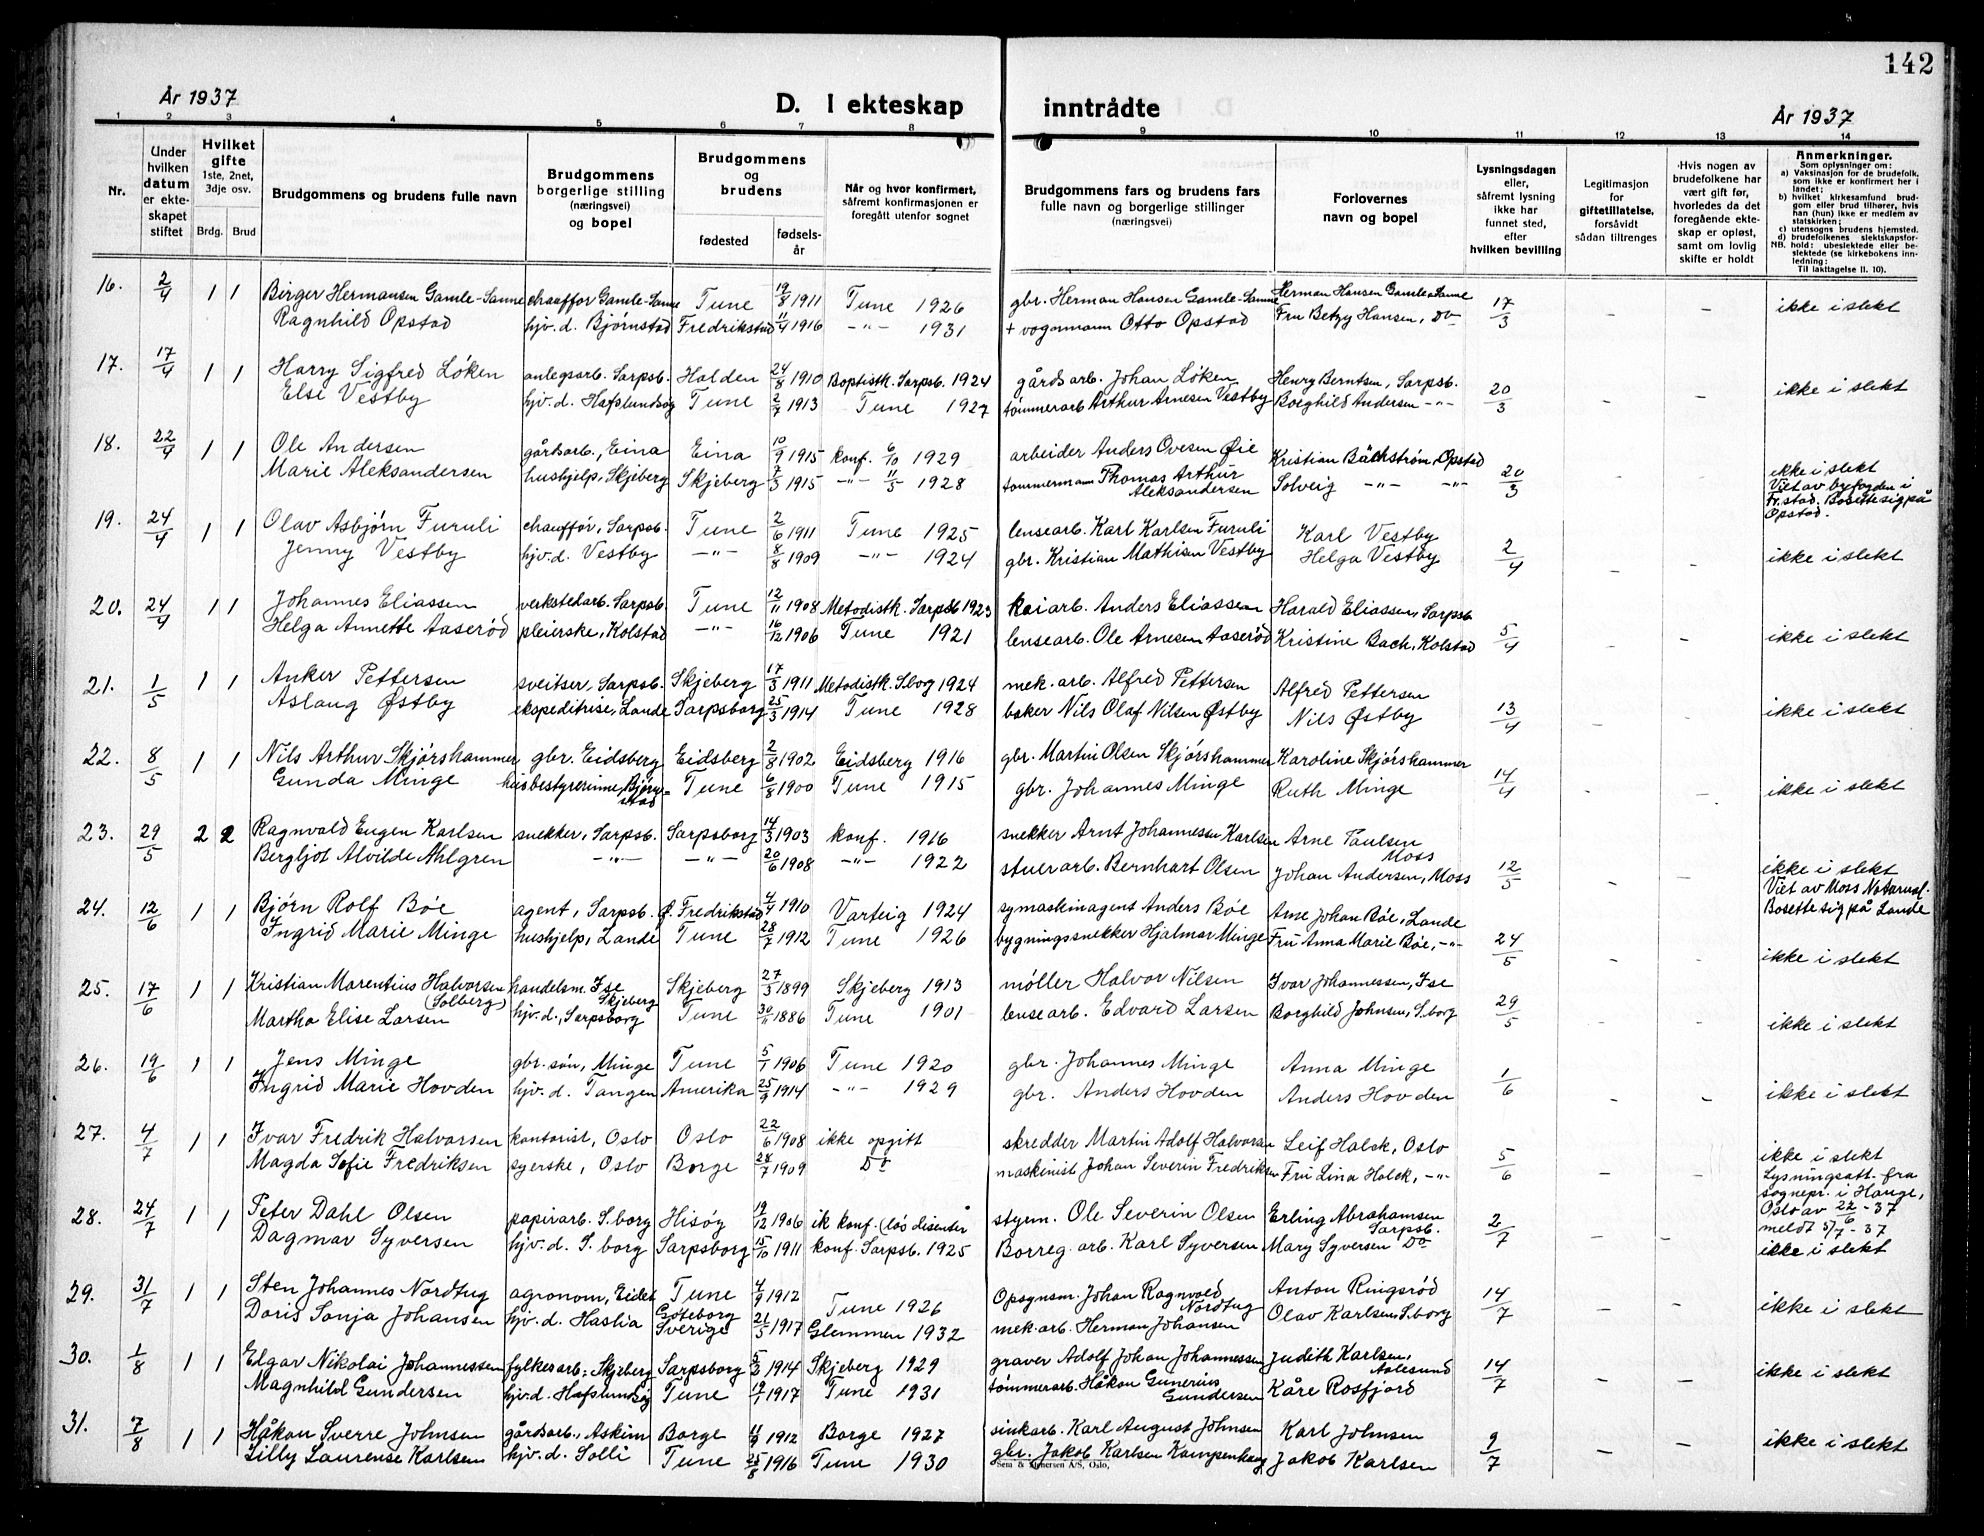 142
År 1937
D. I ekteskap inntrådte
År 1937
1 2 3 4 5 6 7 8 9 10 11 12 13 14
Nr.
Under hvilken datum er ekteskapet stiftet
Hvilket gifte 1ste, 2net, 3dje osv.
Brdg. Brud
Brudgommens og brudens fulle navn
Brudgommens borgerlige stilling (næringsvei) og bopel
Brudgommens og brudens
fødested
fødselsår
Når og hvor konfirmert, såfremt konfirmasjonen er foregått utenfor sognet
Brudgommens fars og brudens fars fulle navn og borgerlige stillinger (næringsvei)
Forlovernes navn og bopel
Lysningsdagen eller, såfremt lysning ikke har funnet sted, efter hvilken bevilling
Legitimasjon for giftetillatelse, forsåvidt sådan tiltrenges
Hvis nogen av brudefolkene har vært gift før, hvorledes da det foregående ekteskap er opløst, samt om lovlig skifte er holdt
Anmerkninger.
Som oplysninger om:
a) Vaksinasjon for de brudefolk, som ikke er konfirmert her i landet;
b) hvilket kirkesamfund brudgom eller brud tilhører, hvis han (hun) ikke er medlem av statskirken;
c) utensogns brudens hjemsted.
d) brudefolkenes slektskapsforhold: ubeslektede eller beslektede (se kirkebokens innledning:
NB. Til iakttagelse II. 10).
16. 2/4 1 1 Birger Hermansen Gamle-Sanne chauffør Gamle-Sanne Tune 19/8 1911 Tune 1926 gbr. Herman Hansen Gamle-Sanne Herman Hansen Gamle-Sanne 17/3 - - ikke i slekt
Ragnhild Opstad hjv. d. Bjørnstad Fredrikstad 11/4 1916 -"- 1931 + vognmann Otto Opstad Fru Betzy Hansen, Do
17. 17/4 1 1 Harry Sigfred Løken anlegsarb. Sarpsb. Halden 24/8 1910 Baptistk. Sarpsb. 1924 gårdsarb. Johan Løken Henry Berntsen, Sarpsb. 20/3 - - ikke i slekt
Else Vestby hjv. d. Hafslundsøy Tune 2/7 1913 Tune 1927 tømmerarb Arthur Arnesen Vestby Borghild Andersen -"-
18. 22/4 1 1 Ole Andersen gårdsarb., Eina Eina 10/9 1915 konf. 6/10 1929 arbeider Anders Ovesen Øie Kristian Bäckstrøm, Opstad 20/3 ikke i slekt
Marie Aleksandersen hushjelp, Skjeberg Skjeberg 7/3 1915 -"- 11/5 1928 tømmermann Thomas Arthur Aleksandersen Solveig -"- -"- Viet av byfogden i Fr.stad. Bosette sig på Opstad.
19. 24/4 1 1 Olav Asbjørn Furuli chauffør, Sarpsb. Tune 2/6 1911 Tune 1925 lensearb. Karl Karlsen Furuli Karl Vestby 2/4 - - ikke i slekt
Jenny Vestby hjv. d. Vestby -"- 8/8 1909 -"- 1924 gbr. Kristian Mathisen Vestby Helga Vestby
20. 24/4 1 1 Johannes Eliassen verkstedarb. Sarpsb. Tune 12/11 1908 Metodistk. Sarpsb 1923 kaiarb. Anders Eliassen Harald Eliassen, Sarpsb 5/4 - - ikke i slekt
Helga Annette Aaserød pleierske, Kolstad -"- 16/12 1906 Tune 1921 lensearb. Ole Arnesen Aaserød Kristine Bach, Kolstad
21. 1/5 1 1 Anker Pettersen sveitser, Sarpsb. Skjeberg 17/3 1911 Metodistk. S.borg 1924 mek. arb. Alfred Pettersen Alfred Pettersen 13/4 - - ikke i slekt
Aslaug Østby ekspeditrise, Lande Sarpsborg 25/3 1914 Tune 1928 baker Nils Olaf Nilsen Østby Nils Østby
22. 8/5 1 1 Nils Arthur Skjørshammer gbr. Eidsberg Eidsberg 2/8 1902 Eidsberg 1916 gbr. Martin Olsen Skjørshammer Karoline Skjørshammer 14/4 - - ikke i slekt
Gunda Minge husbestyrerinne, Bjørnstad Tune 6/8 1900 Tune 1915 gbr. Johannes Minge Ruth Minge
23. 29/5 2 2 Ragnvald Eugen Karlsen snekker, Sarpsb. Sarpsborg 14/3 1903 konf. 1916 snekker Arnt Johannessen Karlsen Arne Paulsen Moss 12/5 - - ikke i slekt
Bergljot Alvilde Ahlgren -"- -"- 20/6 1908 -"- 1922 stuerarb. Bernhart Olsen Johan Andersen, Moss Viet av Moss Notarius. Bosette sig på Lande
24. 12/6 1 1 Bjørn Rolf Bøe agent, Sarpsb. Ø. Fredrikstad 4/4 1910 Varteig 1924 symaskinagent Anders Bøe Arne Johan Bøe, Lande 24/5 - - ikke i slekt
Ingrid Marie Minge hushjelp, Lande Tune 28/7 1912 Tune 1926 bygningssnekker Hjalmar Minge Fru Anna Marie Bøe, -"-
25. 17/6 1 1 Kristian Marentius Halvorsen (Solberg) handelsm. Ise Skjeberg Skjeberg 27/3 1899 Skjeberg 1913 møller Halvor Nilsen Ivar Johannessen, Ise 29/5 - - ikke i slekt
Martha Elise Larsen hjv. d., Sarpsborg Tune 30/11 1886 Tune 1901 lensearb. Edvard Larsen Borghild Johnsen, S.borg
26. 19/6 1 1 Jens Minge gbr. søn, Minge Tune 5/1 1906 Tune 1920 gbr. Johannes Minge Anna Minge 1/6 - - ikke i slekt
Ingrid Marie Hovden hjv. d. Tangen Amerika 25/9 1914 -"- 1929 gbr. Anders Hovden Anders Hovden
27. 4/7 1 1 Ivar Fredrik Halvorsen kontorist, Oslo Oslo 22/6 1908 ikke opgitt skredder Martin Adolf Halvorsen Leif Halck, Oslo 5/6 - - ikke i slekt
Magda Sofie Fredriksen syerske, Oslo Borge 28/7 1909 Do maskinist Johan Severin Fredriksen Fru Lina Halck, -"- Lysningsatt. fra sognepr. i Hauge, Oslo av 22/6 - 37 meldt 5/7 - 37
28. 24/7 1 1 Peter Dahl Olsen papirarb. S.borg Hisøy 19/12 1906 ik konf. (løs disenter styrm. Ole Severin Olsen Erling Abrahamsen Sarpsb. 2/7 - - ikke i slekt
Dagmar Syversen hjv. d. S. borg Sarpsborg 15/10 1911 konf. Sarpsb. 1925 Borreg. arb. Karl Syversen Mary Syversen Do
29. 31/7 1 1 Sten Johannes Nordtug agronom, Eidet Tune 4/9 1912 Tune 1926 Opsynsm. Johan Ragnvald Nordtug Anton Ringsrød 14/7 - - ikke i slekt
Doris Sonja Johansen hjv. d. Haslia Gøteborg Sverige 21/5 1917 Glemmen 1932 mek. arb. Herman Johansen Olav Karlsen, S.borg
30. 1/8 1 1 Elgar Nikolai Johannessen fylkesarb. Skjeberg Sarpsborg 5/2 1914 Skjeberg 1929 graver Adolf Johan Johannessen Judith Karlsen, Aalesund 14/7 - - ikke i slekt
Magnhild Gundersen hjv. d. Hafslundsøy Tune 19/1 1917 Tune 1931 tømmerarb. Håkon Gunerius Gundersen Kåre Rosfjord
31. 7/8 1 1 Håkon Sverre Johnsen gårdsarb., Askim Borge 11/9 1912 Borge 1927 sinkarb. Karl August Johnsen Karl Johnsen 9/7 - - ikke i slekt
Lilly Laurense Karlsen hjv. d. Solli Tune 25/8 1916 Tune 1930 gbr. Jakob Karlsen Kampenhaug Jakob Karlsen